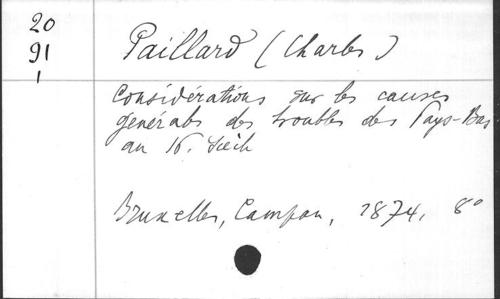 20
91
1
Paillard (Charles)
Considérations sur les causes
générales des troubles des Pays-Bas
au 16. siècle
Bruxelles, Campan, 1874, 8°